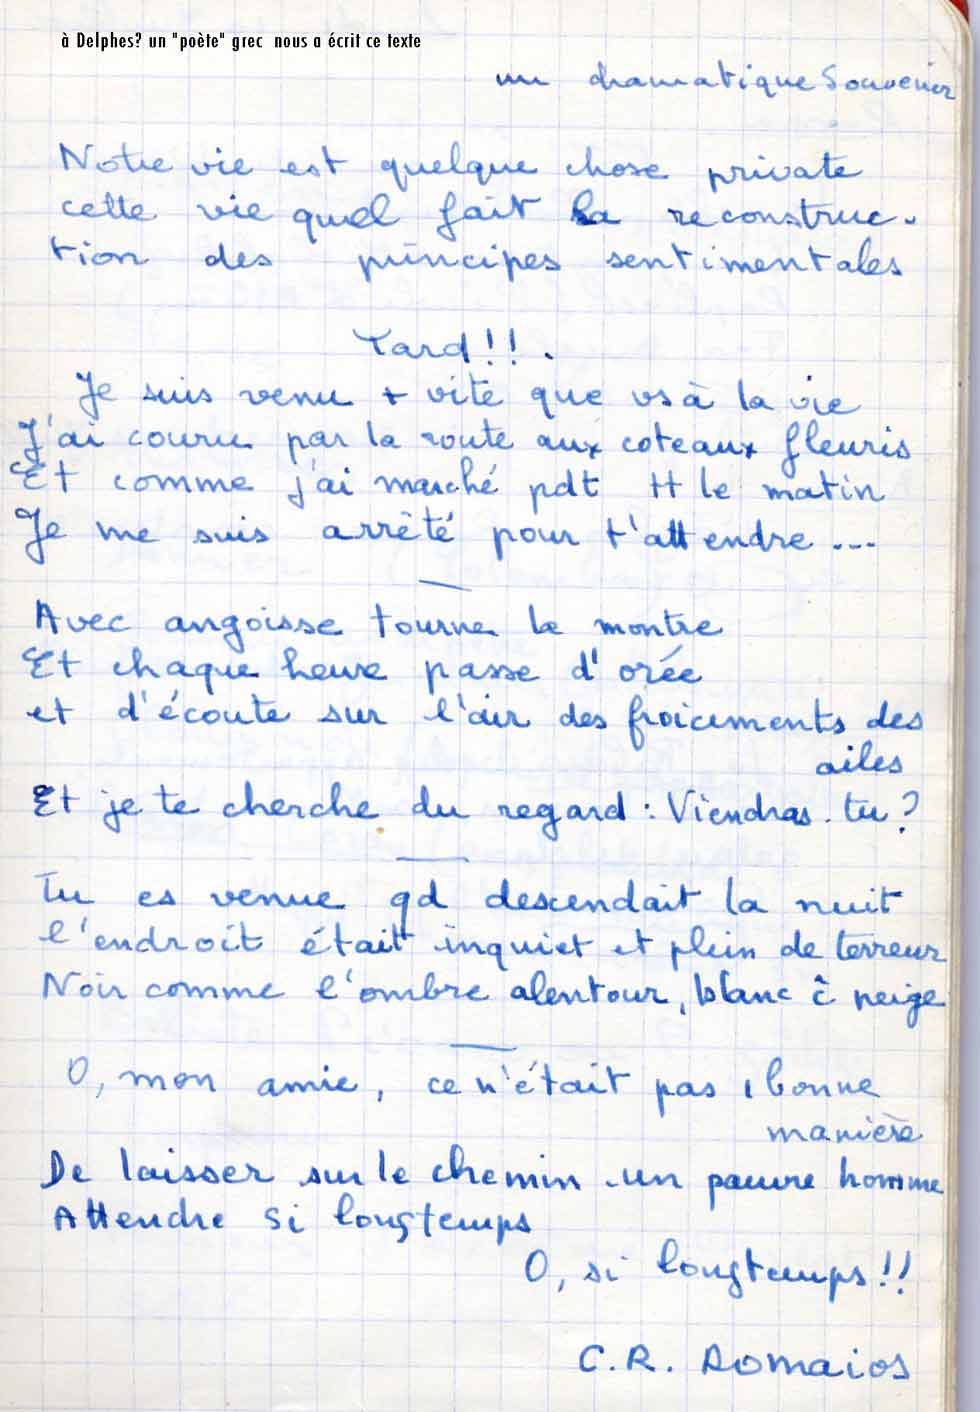 à Delphes? un "poète" grec nous a écrit ce texte
un dramatique Souvenir
Notre vie est quelque chose private
cette vie quel fait la reconstruc-
tion des principes sentimentales
Tard!!.
Je suis venu + vite que vs à la vie
J'ai couru par la route aux coteaux fleuris
Et comme j'ai marché pdt tt le matin
Je me suis arrêté pour t'attendre ...
Avec angoisse tourne la montre
Et chaque heure passe d'orée
et d'écoute sur l'air des froicements des
ailes
Et je te cherche du regard : Viendras-tu?
Tu es venue qd descendait la nuit
l'endroit était inquiet et plein de terreur
Noir comme l'ombre alentour, blanc c neige
O, mon amie, ce n'était pas 1 bonne
manière
De laisser sur le chemin un pauvre homme
Attendre si longtemps
O, si longtemps!!
C.R. Romaios